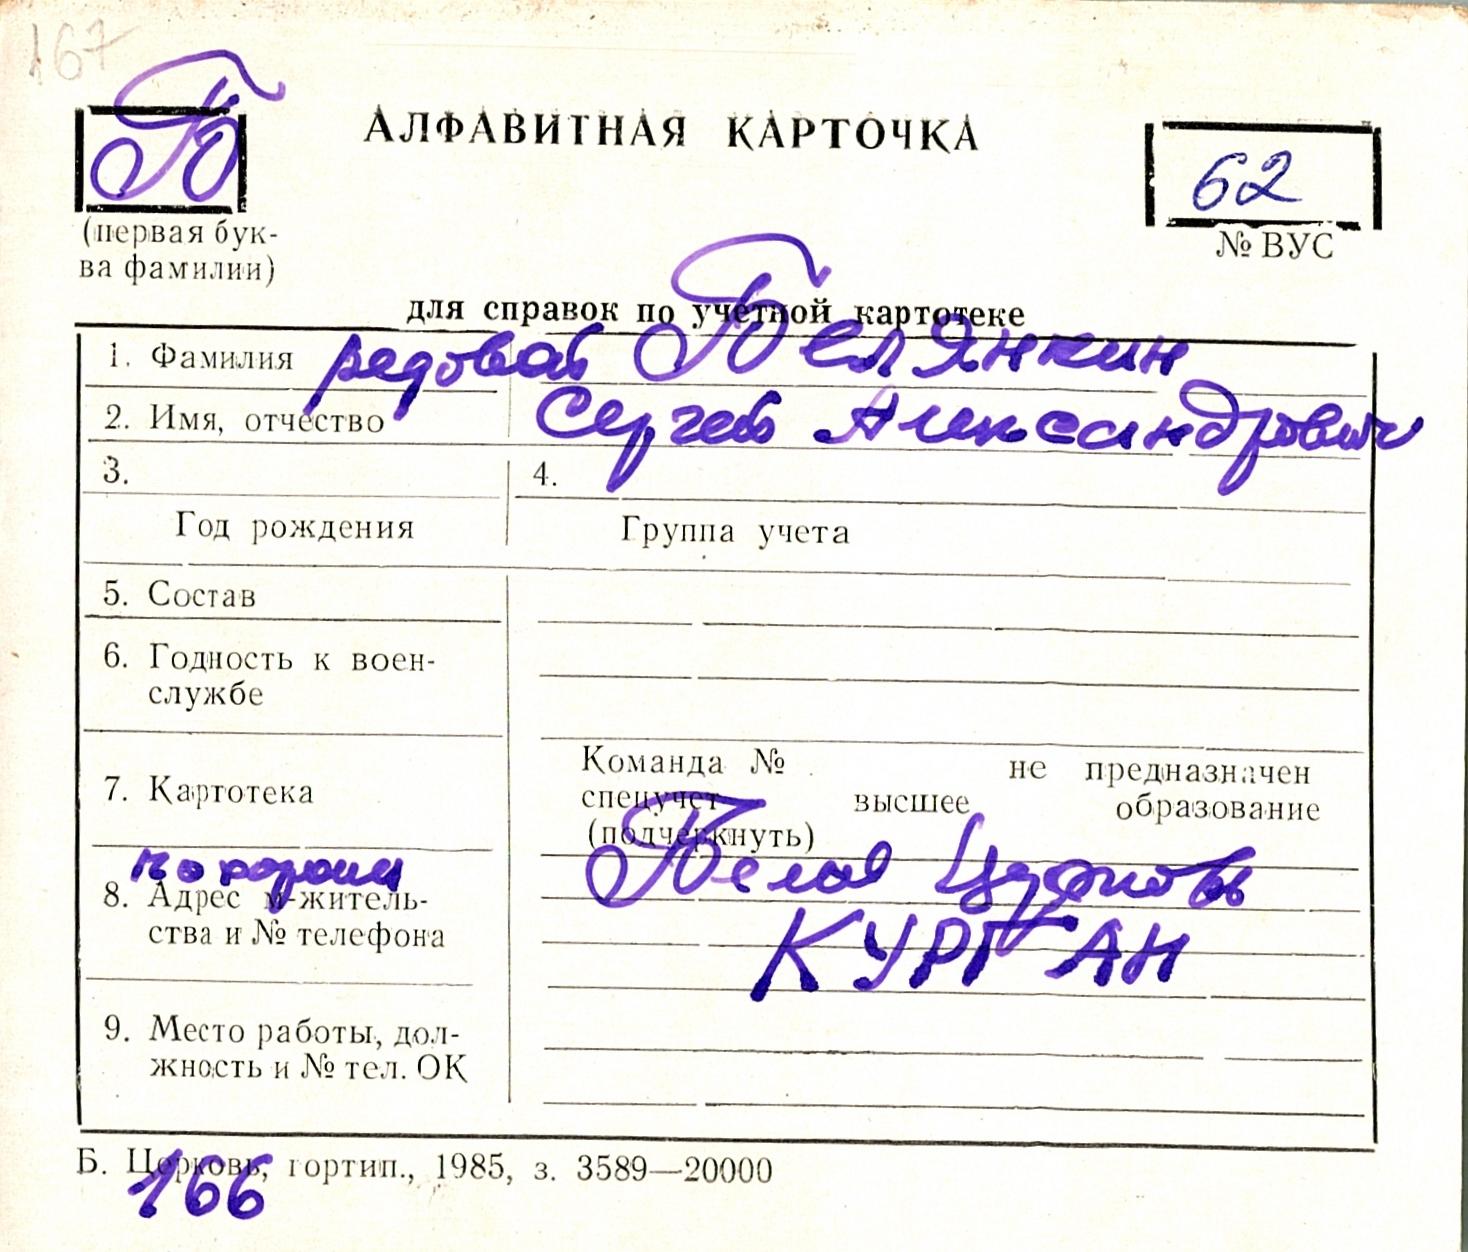 167
Б
АЛФАВИТНАЯ КАРТОЧКА
62
(первая бук-
ва фамилии)
№ ВУС
для справок по учетной картотеке
1. Фамилия рядовой Белянкин
2. Имя, отчество Сергей Александрович
3. 4.
Год рождения Группа учета
5. Состав
6. Годность к воен-
службе
Команда № не предназначен
7. Картотека спецучет высшее образование
(подчеркнуть)
похорон Белая Церковь
8. Адрес м-житель-
ства и № телефона КУРГАН
9. Место работы, дол-
жность и № тел. ОК
Б. Церковь, гортип., 1985, з. 3589—20000
166